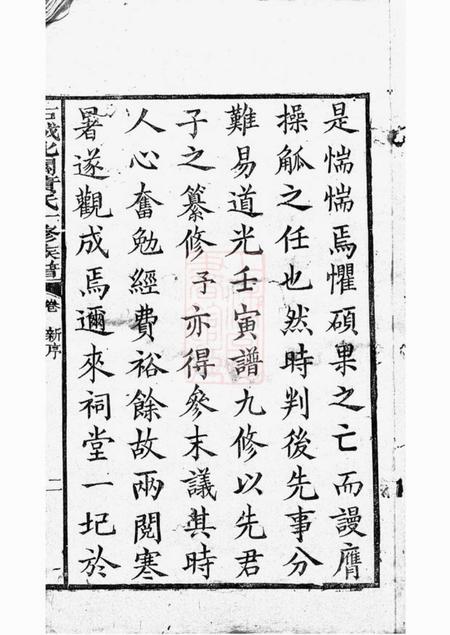 是惴惴焉懼碩果之亡而謾膺
操觚之任也然時判後先事分
難易道光壬寅譜九修以先君
子之纂修予亦得參末議其時
人心奮勉經費裕餘故兩閱寒
暑遂觀成焉邇來祠堂一圮於
氏一修族譜 卷 新序 二